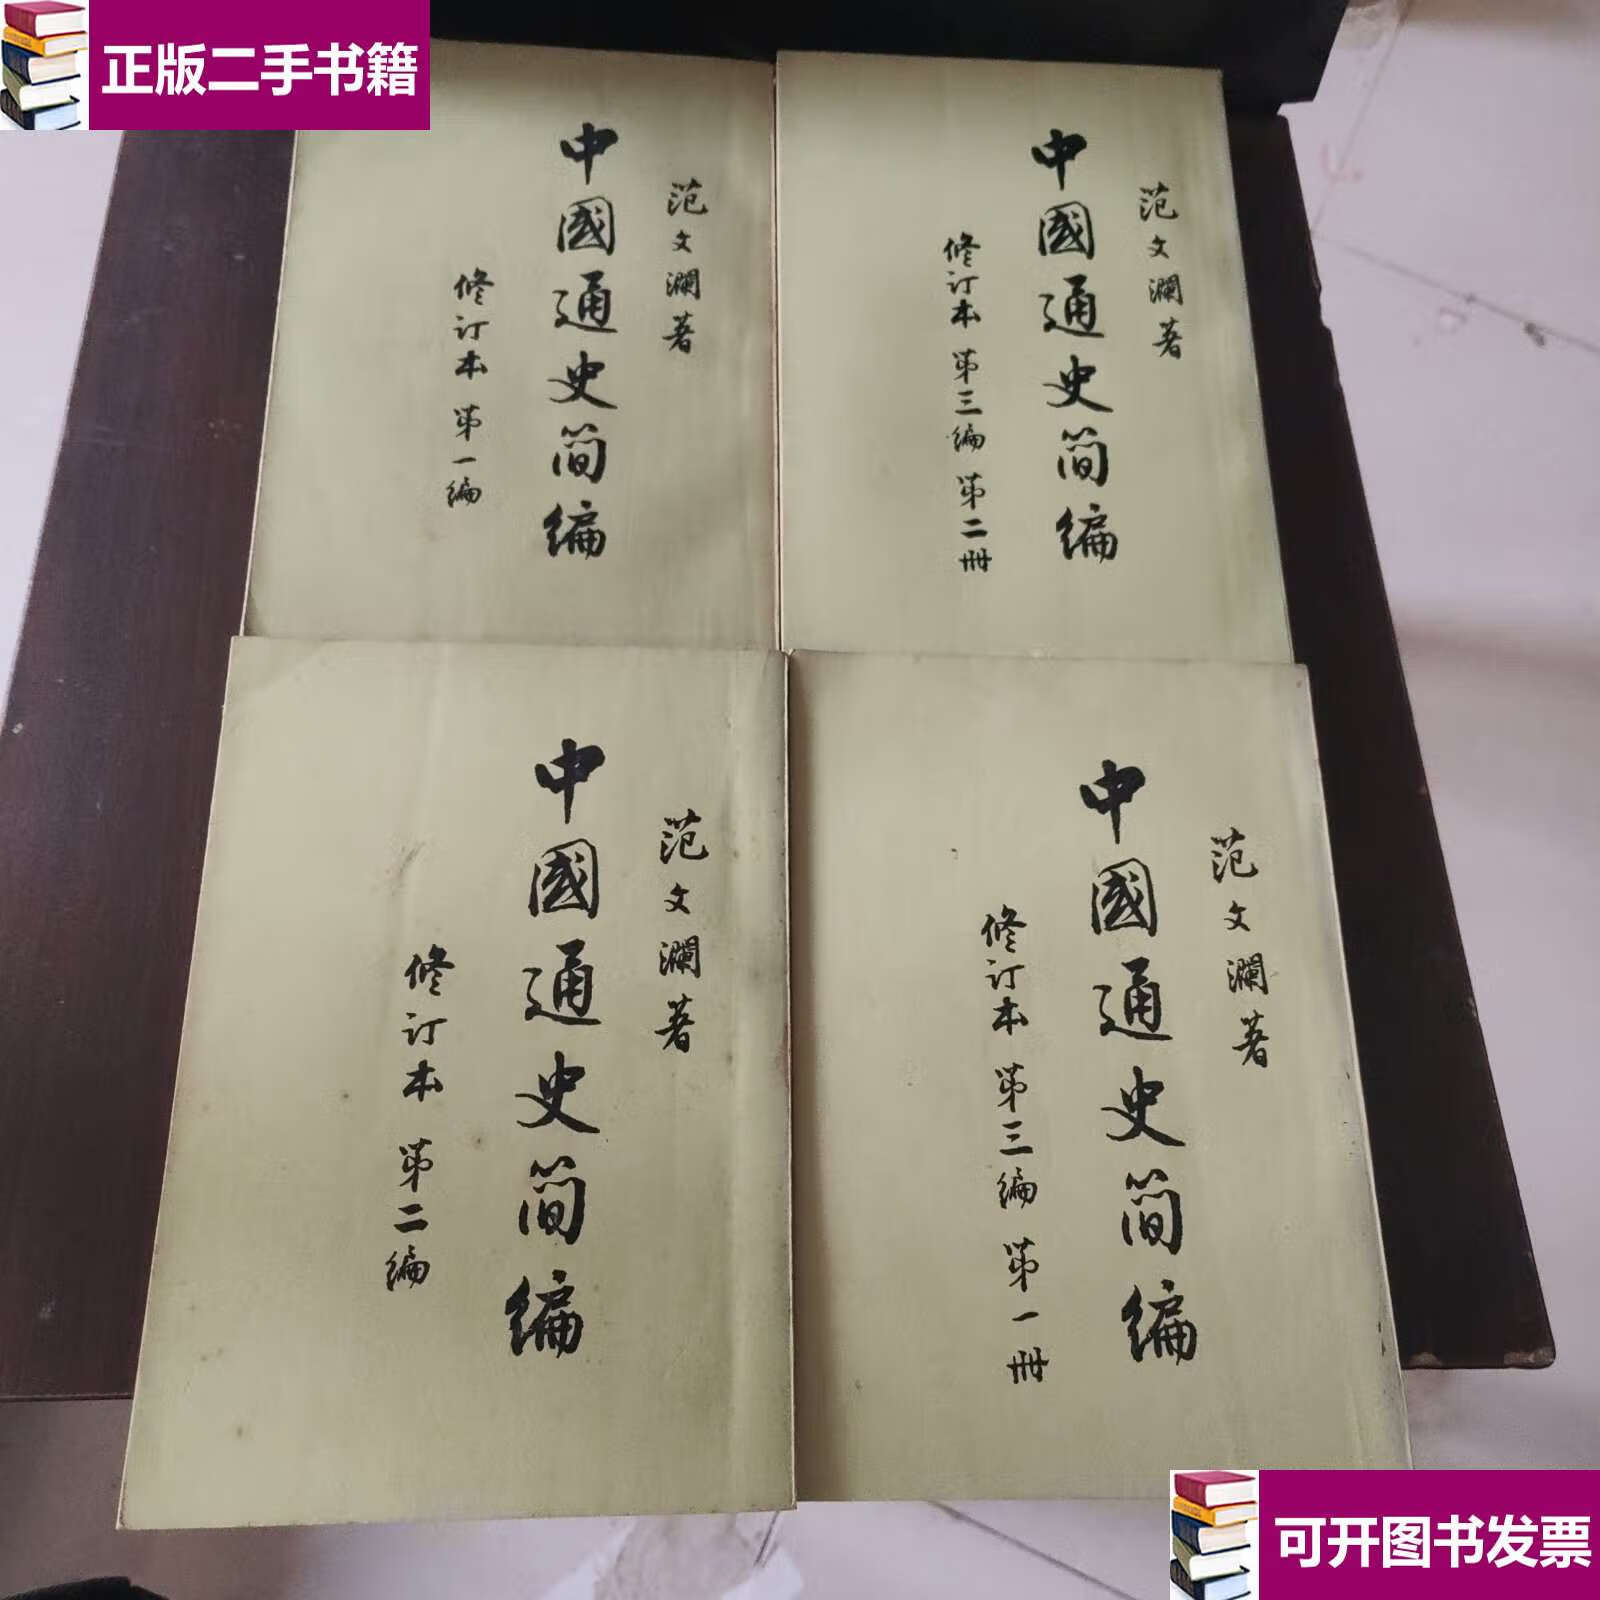 正版二手书籍
范文瀾著
中國通史简编
修订本 第一编
范文瀾著
中國通史简编
修订本 第三编 第二册
范文瀾著
中國通史简编
修订本 第二编
范文瀾著
中國通史简编
修订本 第三编 第一册
可开图书发票